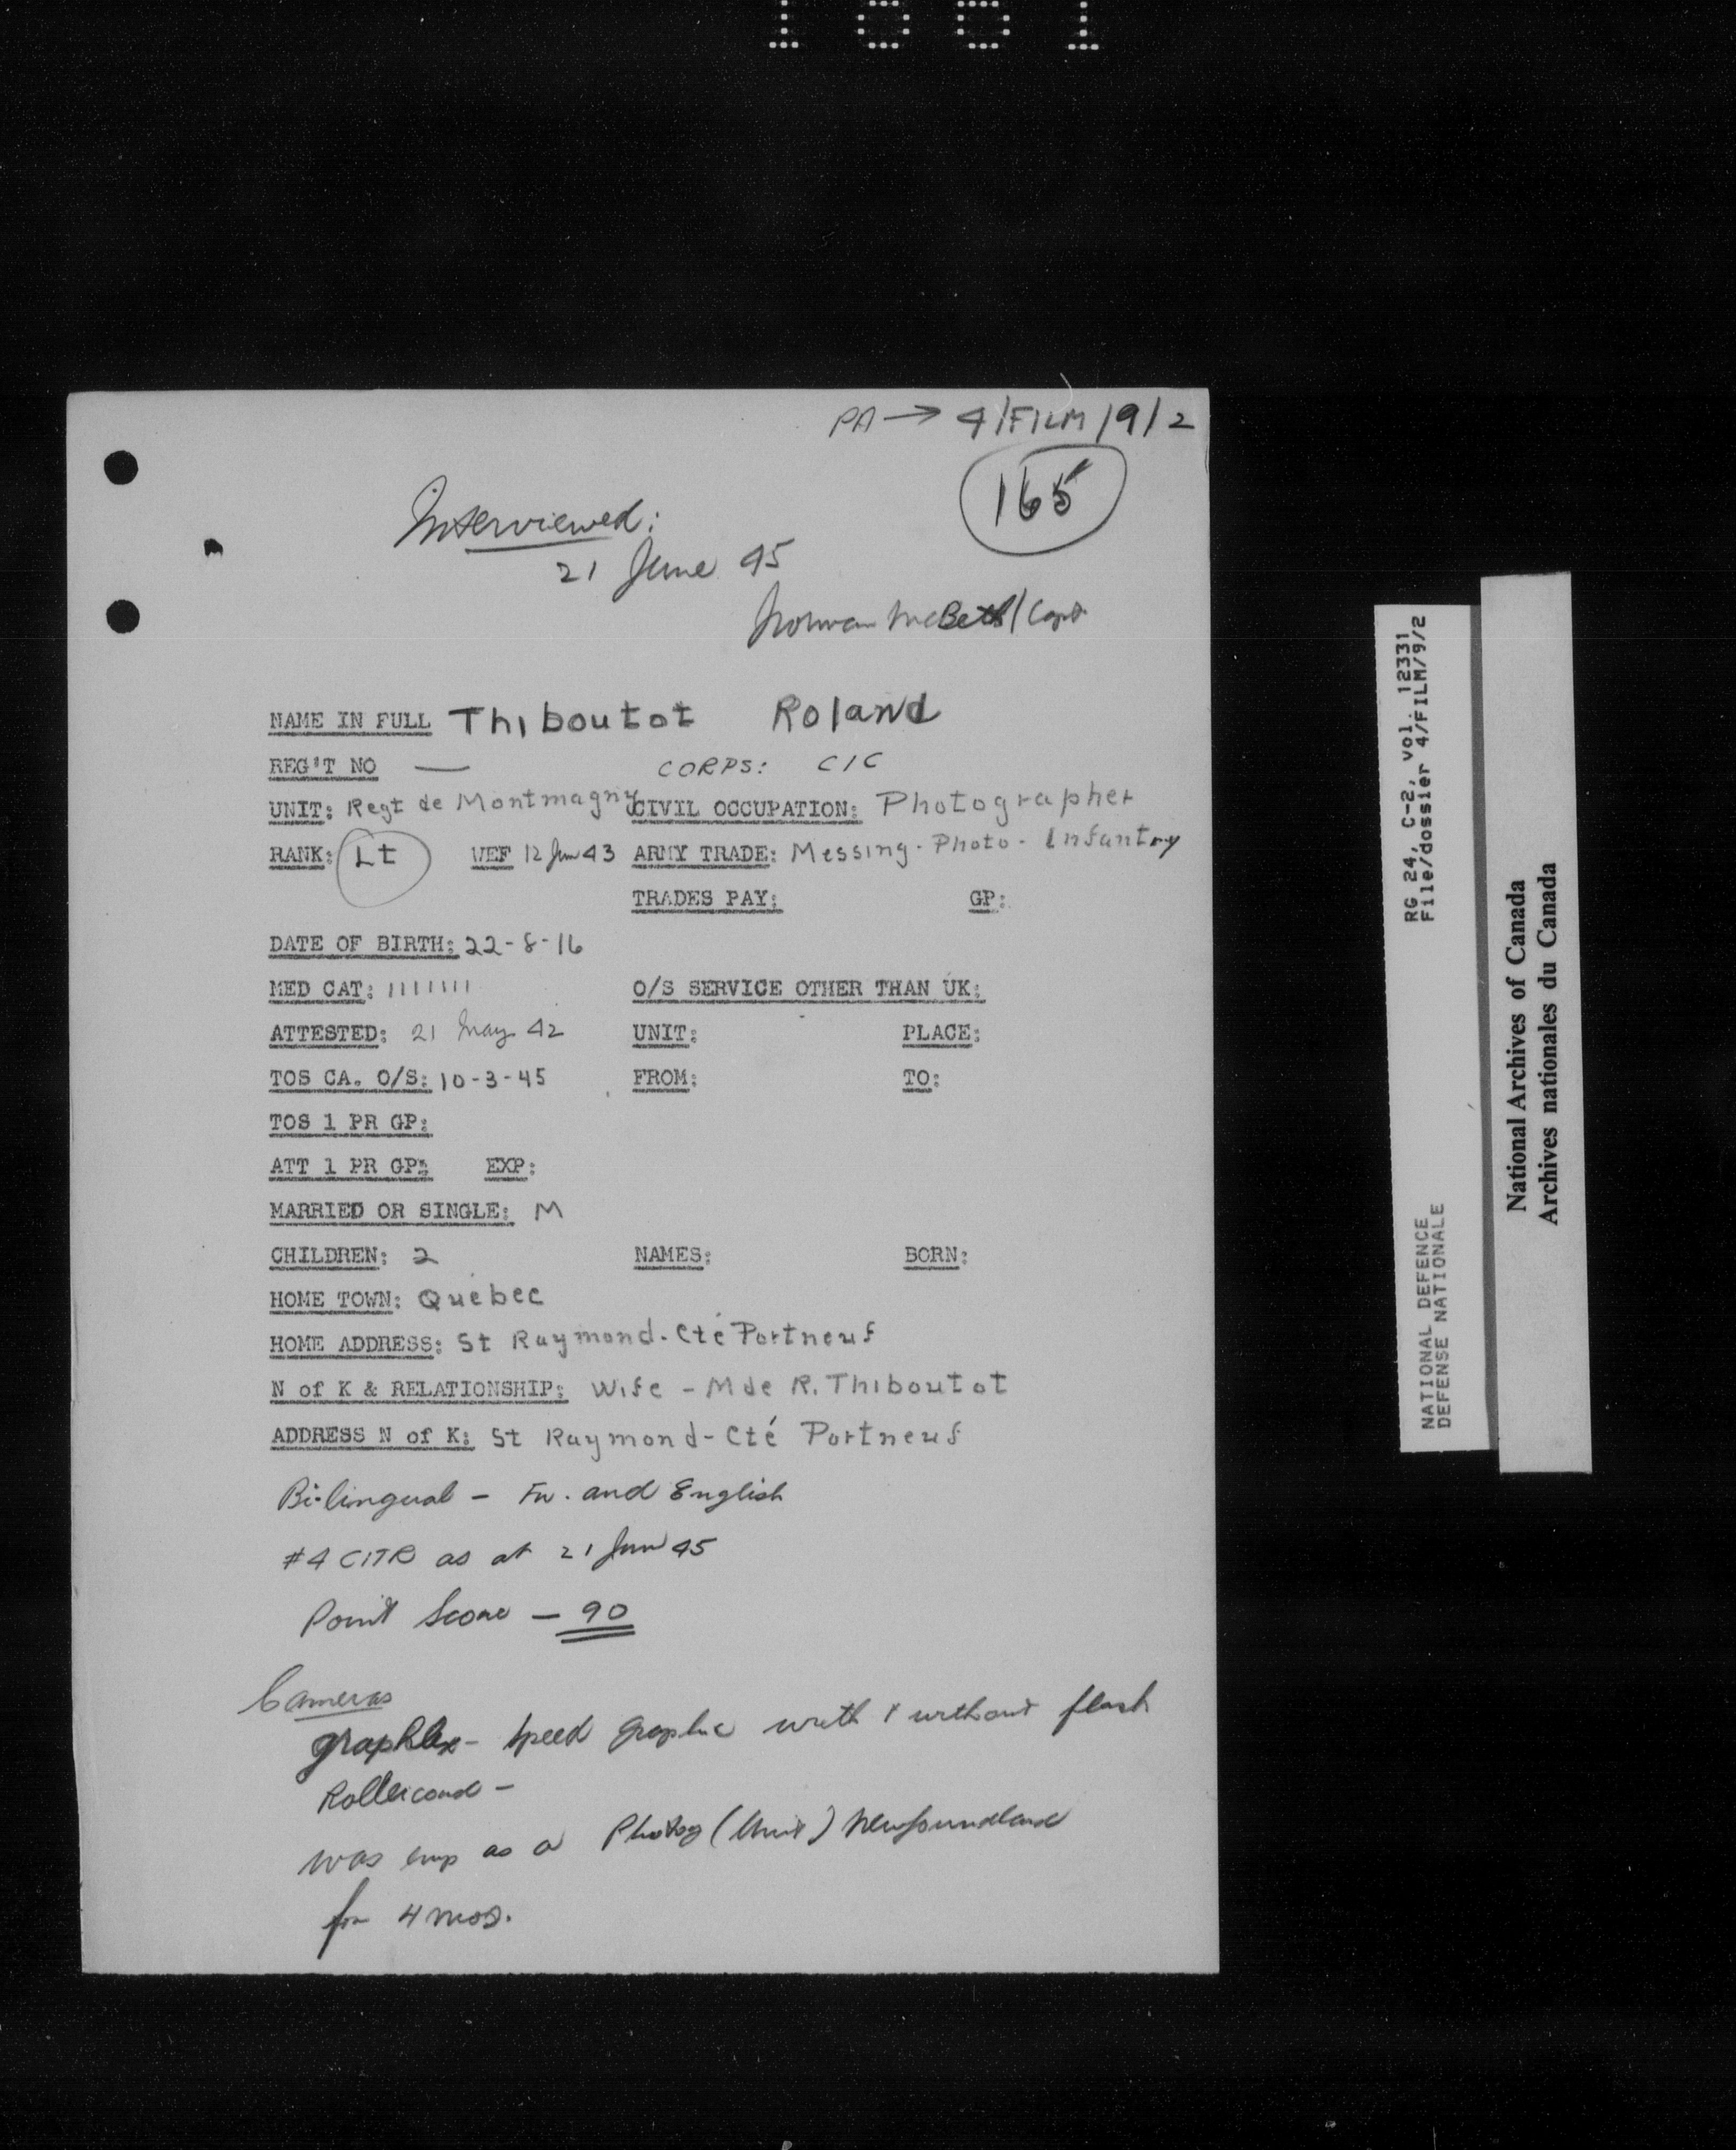 PA → 4/FILM/9/2
165
Interviewed:
21 June 45
Norman McBeth/Capt
NAME IN FULL Thiboutot Roland
REG'T NO — CORPS: CIC
UNIT: Regt de Montmagny CIVIL OCCUPATION: Photographer
RANK: Lt WEF 12 Jun 43 ARMY TRADE: Messing - Photo - Infantry
TRADES PAY: GP:
DATE OF BIRTH: 22-8-16
MED CAT: 1111111 O/S SERVICE OTHER THAN UK:
ATTESTED: 21 May 42 UNIT: PLACE:
TOS CA. O/S: 10-3-45 FROM: TO:
TOS 1 PR GP:
ATT 1 PR GP: EXP:
MARRIED OR SINGLE: M
CHILDREN: 2 NAMES: BORN:
HOME TOWN: Québec
HOME ADDRESS: St Raymond - Cté Portneuf
N of K & RELATIONSHIP: Wife - Mde R. Thiboutot
ADDRESS N of K: St Raymond - Cté Portneuf
Bi-lingual - Fr. and English
#4 CITR as at 21 Jun 45
Point Score - 90
Cameras
graphlex - Speed graphic with & without flash
Rolleicord -
was emp as a Photog (Unit) Newfoundland
for 4 mos.
RG 24, C-2, vol. 12331
File/dossier 4/FILM/9/2
NATIONAL DEFENCE
DEFENSE NATIONALE
National Archives of Canada
Archives nationales du Canada